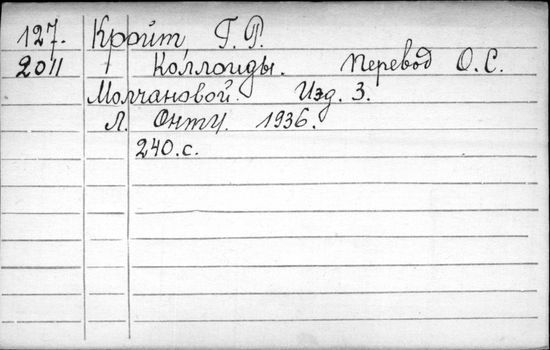 127. Кройт, Г. Р.
2011 Коллоиды. Перевод О. С.
Молчановой. Изд. 3.
Л. Онти. 1936.
240.с.